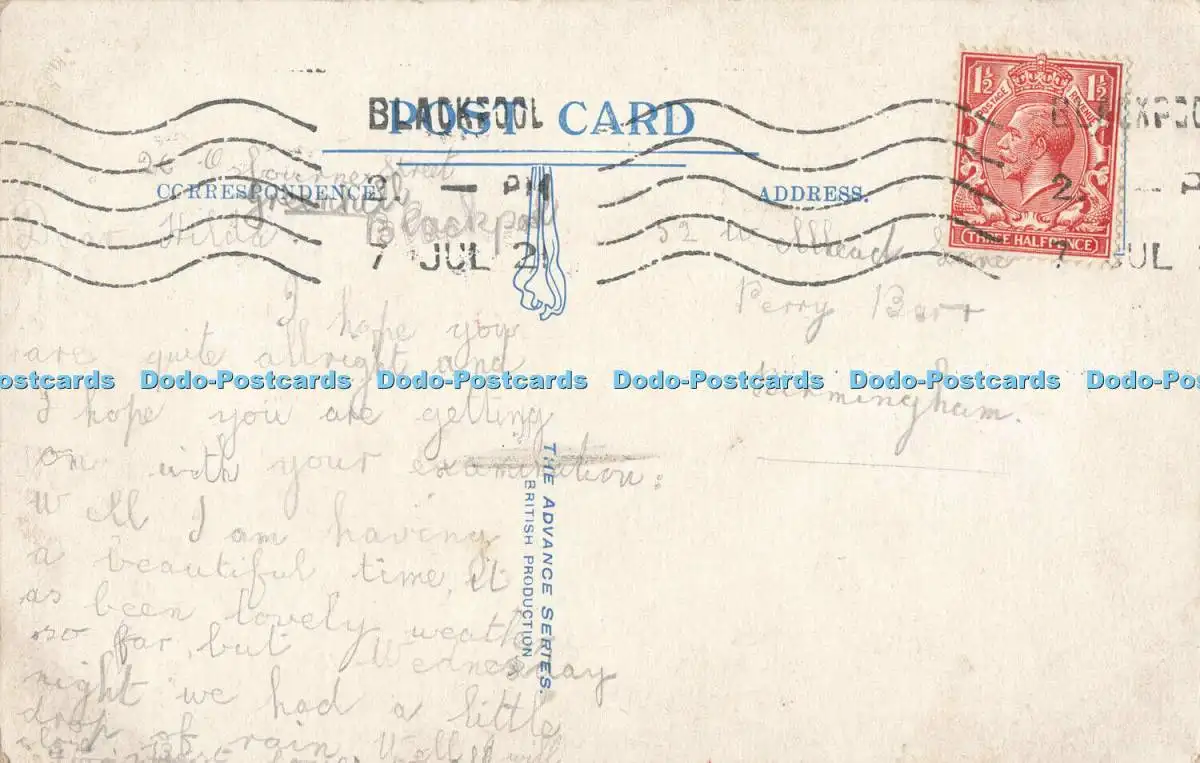 POST CARD
BLACKPOOL
BLACKPOO
1½ 1½
POSTAGE REVENUE
THREE HALFPENCE
CORRESPONDENCE.
ADDRESS.
2 — PM
7 JUL 2
2 — P
7 JUL
Street
Blackpool
Dear Hilda
I hope you
are quite allright and
I hope you are getting
on with your examination.
Well I am having
a beautiful time, it
as been lovely weather
so far, but Wednesday
night we had a little
drop of rain, Well I will
52 Lane
Perry Barr
Birmingham.
THE ADVANCE SERIES.
BRITISH PRODUCTION
Dodo-Postcards Dodo-Postcards Dodo-Postcards Dodo-Postcards Dodo-Postcards Dodo-